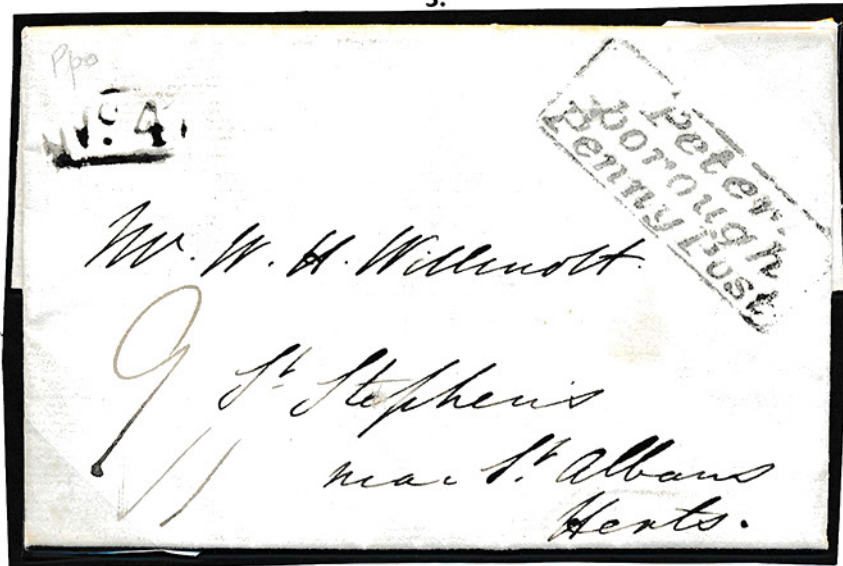 3.
Ppo
No. 4.
Peter-
borough
Penny Post
Mr. W. H. Willmott.
9
St Stephens
near St Albans
Herts.